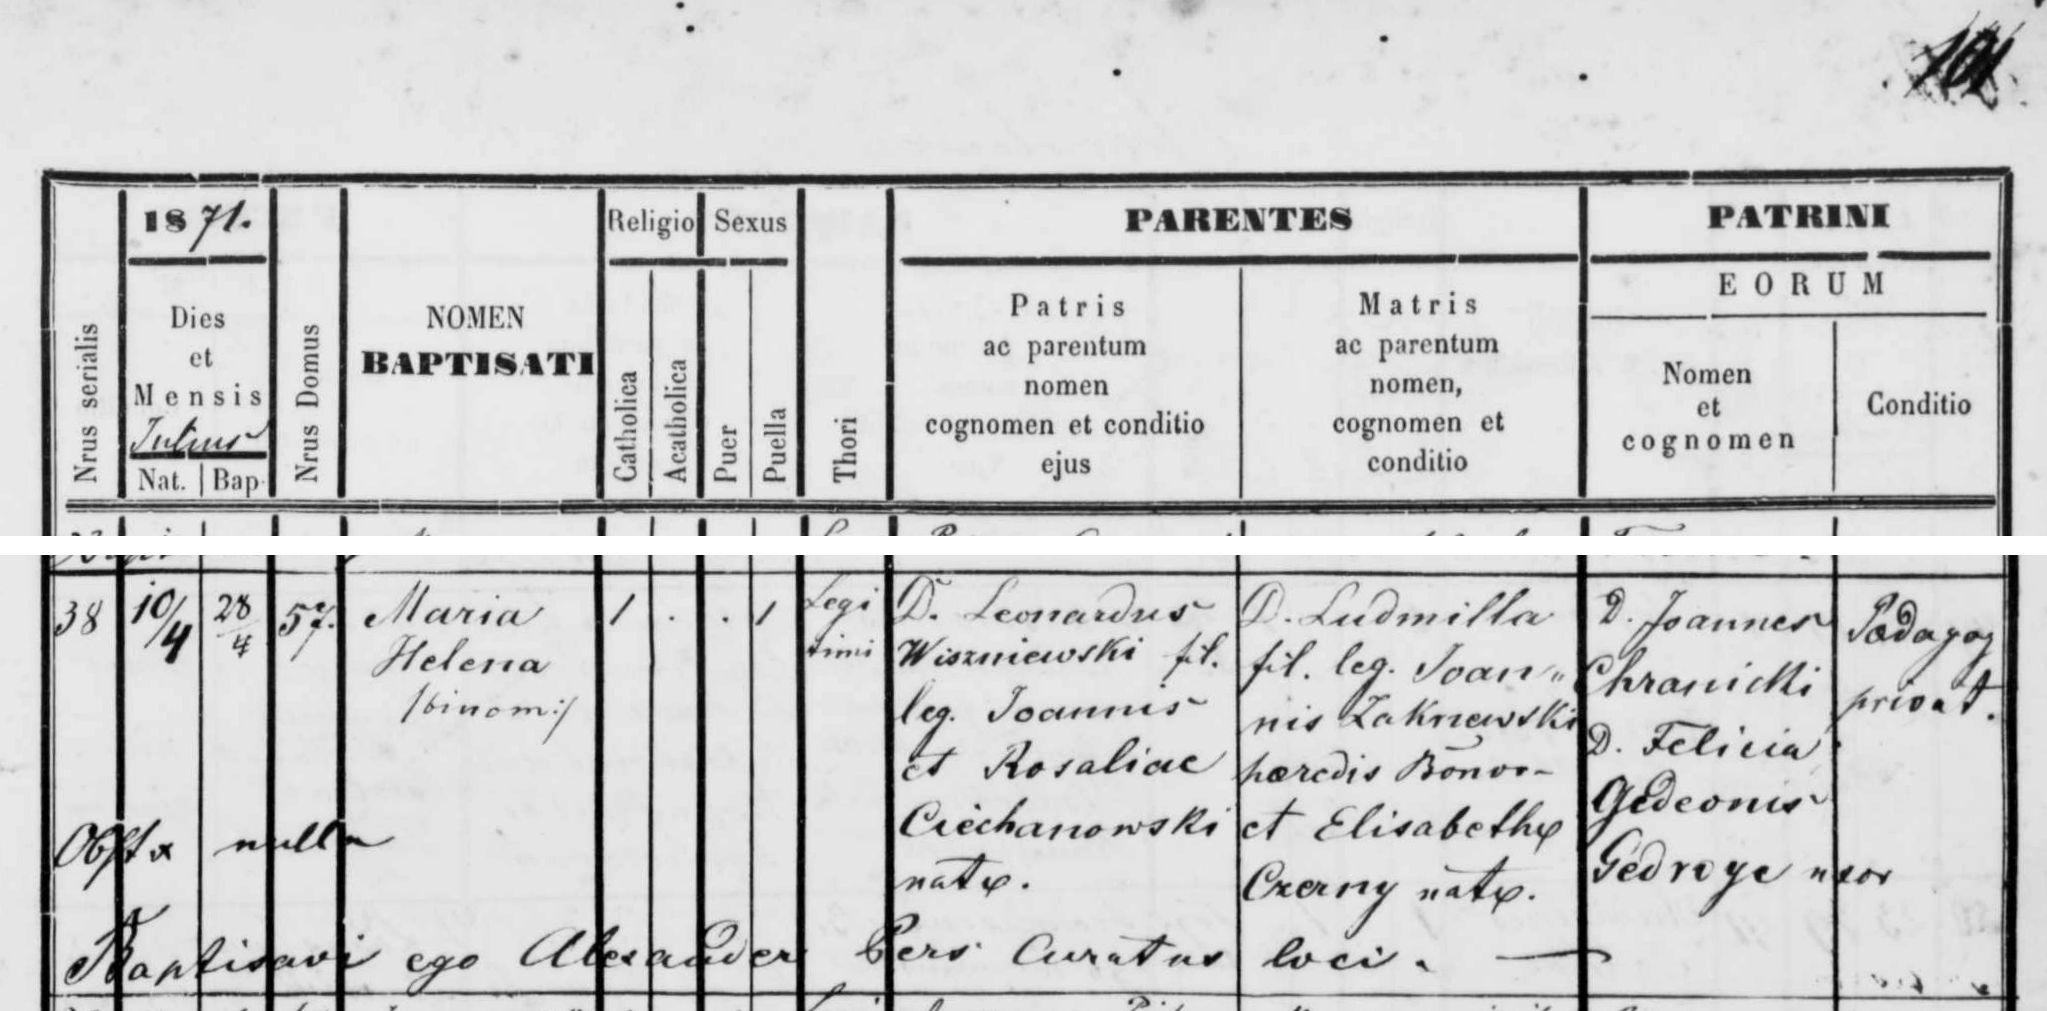 101
1871.
Religio
Sexus
PARENTES
PATRINI
EORUM
Nrus serialis
Dies
et
Mensis
Julius
Nat.
Bap.
Nrus Domus
NOMEN
BAPTISATI
Catholica
Acatholica
Puer
Puella
Thori
Patris
ac parentum
nomen
cognomen et conditio
ejus
Matris
ac parentum
nomen,
cognomen et
conditio
Nomen
et
cognomen
Conditio
38
10/4
28/4
57.
Maria
Helena
/binom:/
1 . . 1
Legi
timi
D. Leonardus
Wiszniewski fil.
leg. Joannis
et Rosaliae
Ciechanowski
natæ.
D. Ludmilla
fil. leg. Joan„
nis Zakrzewski
hæredis Bonor-
et Elisabethæ
Czerny natæ.
D. Joannes
Chranicki
D. Felicia
Gedeonis
Gedroyc uxor
Pædagog
privat.
Obst x nulla
Baptisavi ego Alexander Pers Curatus loci. —